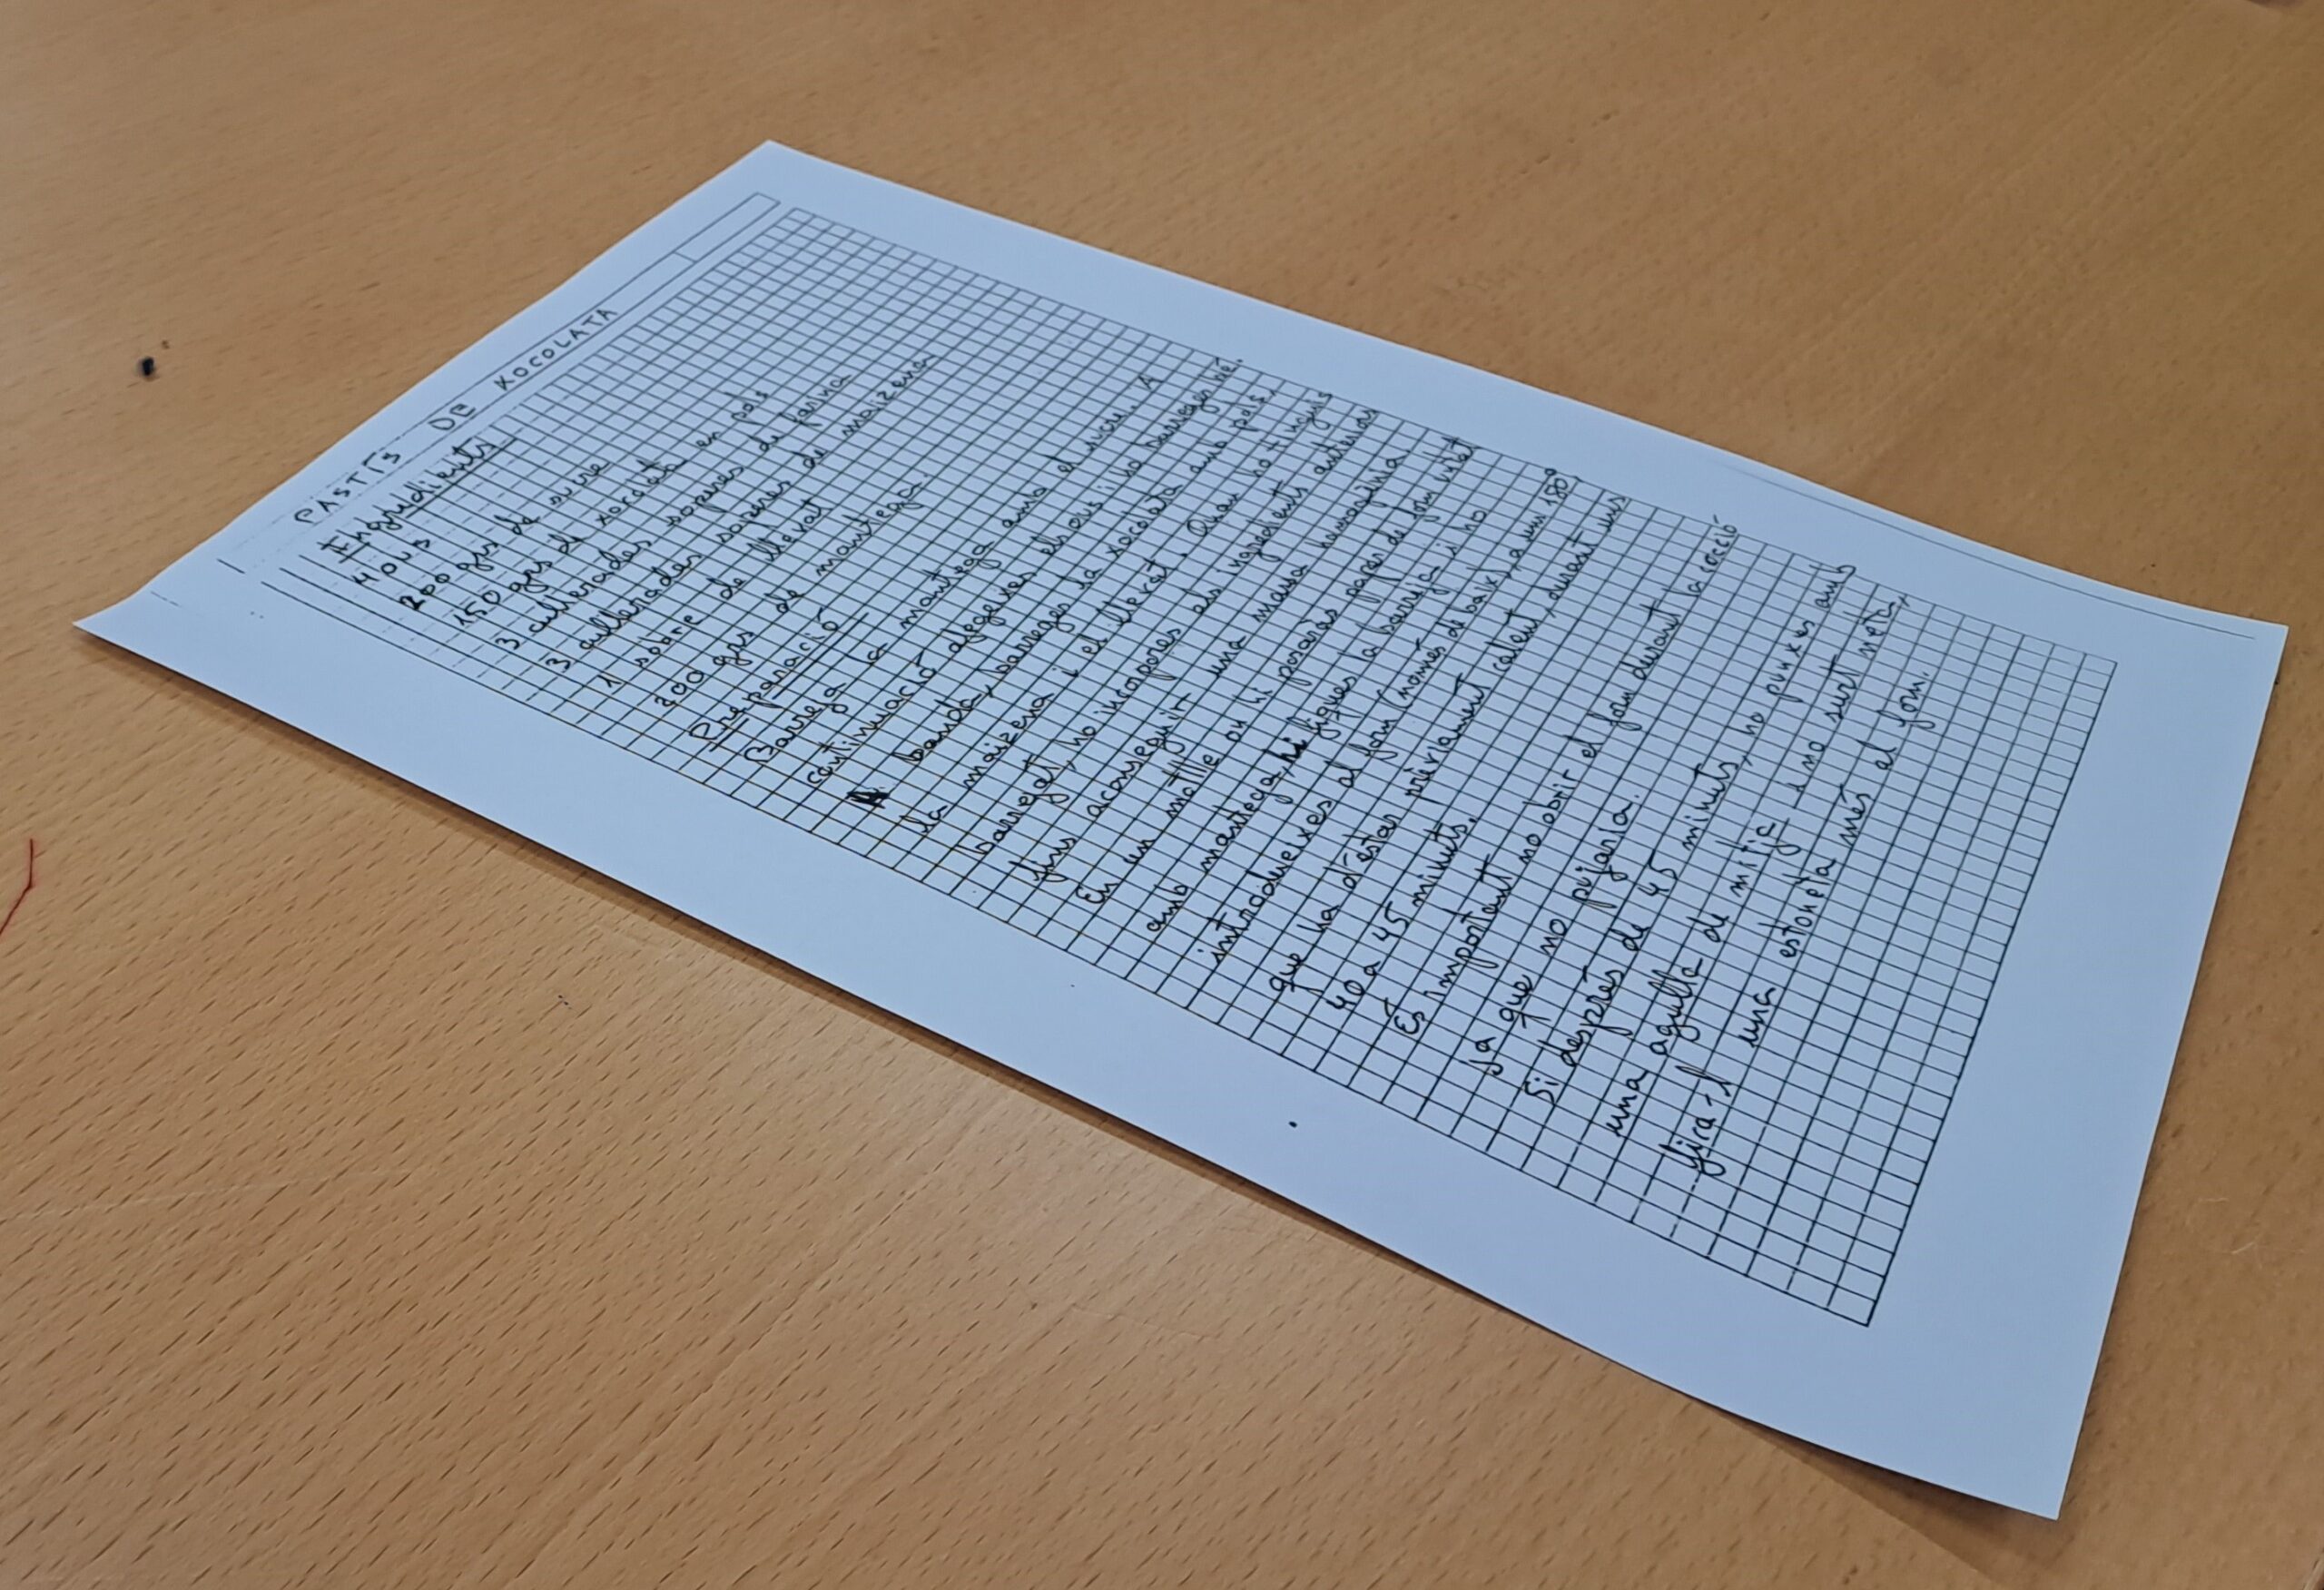 PASTÍS DE XOCOLATA
Ingredients
4 ous
200 grs de sucre
150 grs de xocolata en pols
3 cullerades soperes de farina
3 cullerades soperes de maizena
1 sobre de llevat
200 grs de mantega.
Preparació
Barreja la mantega amb el sucre. A
continuació afegeixes els ous i ho barreges bé.
A banda, barreges la xocolata amb pols,
la maizena i el llevat. Quan ho tinguis
barrejat, ho incorpores als ingredients anteriors
fins aconseguir una massa homogènia.
En un motlle on hi posaràs paper de forn untat
amb mantega, hi fiques la barreja i ho
introdueixes al forn (només de baix), a uns 180º
que ha d'estar prèviament calent, durant uns
40 a 45 minuts.
És important no obrir el forn durant la cocció
ja que no pujaria.
Si després de 45 minuts, ho punxes amb
una agulla de mitja i no surt neta,
fica-l una estoneta més al forn.